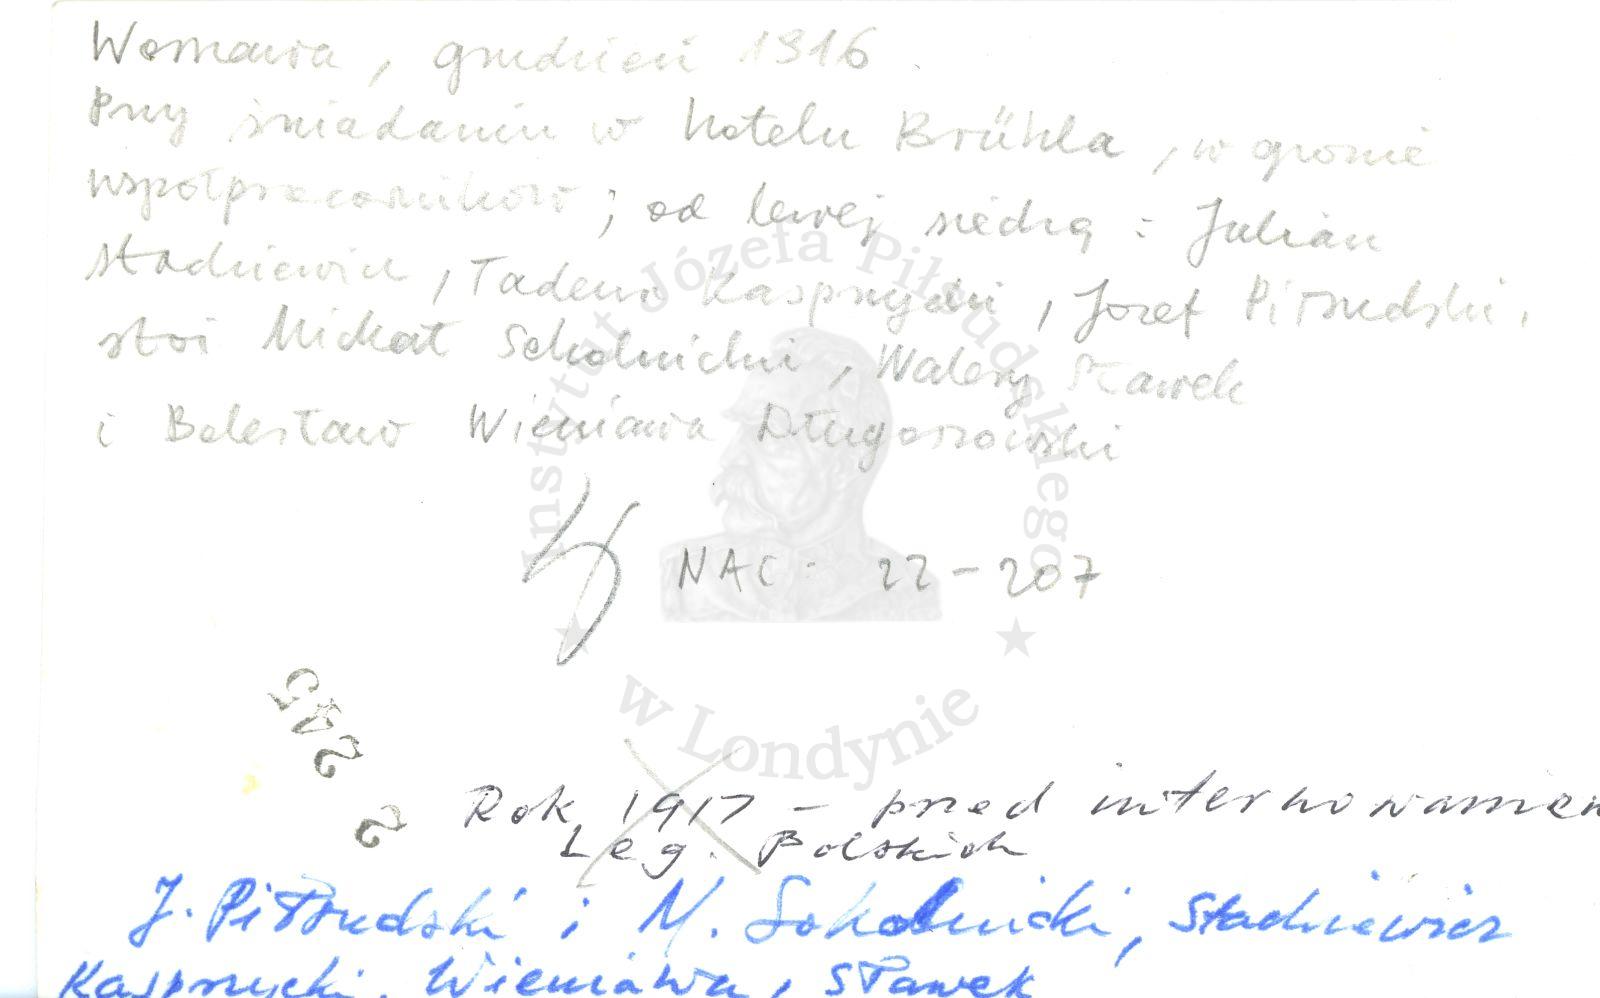 Warszawa, grudzień 1916
Przy śniadaniu w hotelu Brühla, w gronie
współpracowników; od lewej siedzą: Julian
Stachiewicz, Tadeusz Kasprzycki, Józef Piłsudski,
stoi Michał Sokolnicki, Walery Sławek
i Bolesław Wieniawa Długoszowski
NAC: 22-207
2 245
Rok 1917 - przed internowaniem
Leg. Polskich
J. Piłsudski i M. Sokolnicki, Stachiewicz
Kasprzycki, Wieniawa, Sławek
Instytut Józefa Piłsudskiego
w Londynie